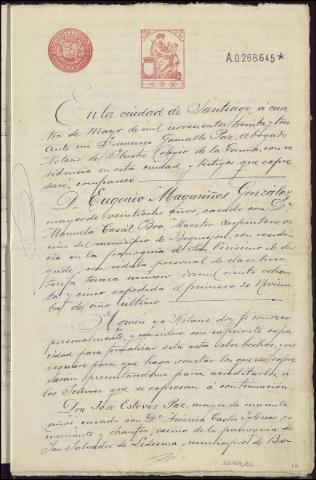 A.0.268.645*
En la ciudad de Santiago, a cua
tro de Mayo de mil novecientos treinta y tres
Ante mí Francisco Gamallo Paz, Abogado
Notario del Ilustre Colegio de la Coruña, con re
sidencia en esta ciudad y testigos que expre
saré, comparece
D. Eugenio Magariños González
mayor de veinticinco años, casado con Dª
Manuela Boo, Maestro Carpintero, ve
cino del municipio de Boqueijón, con residen
cia en la parroquia de San Verísimo de
con cédula personal de clase trece
tarifa tercera número dosmil ciento ochen
ta y cinco expedida el primero de Noviem
bre de año último
Aquien yo Notario doy fe conocer
personalmente, y considero con suficiente capa
cidad para formalizar esta acta sobre hechos, y me
requiere para que haga constar los que se expre
sarán presentándome para acreditarlos á
los Señores que se expresan á continuación.
Don José Estevez Paz, mayor de
años casado con Dª América Castro Iglesias, co
merciante y chaufer, vecino de la parroquia de
San Salvador de Ledesma, municipio de Bo